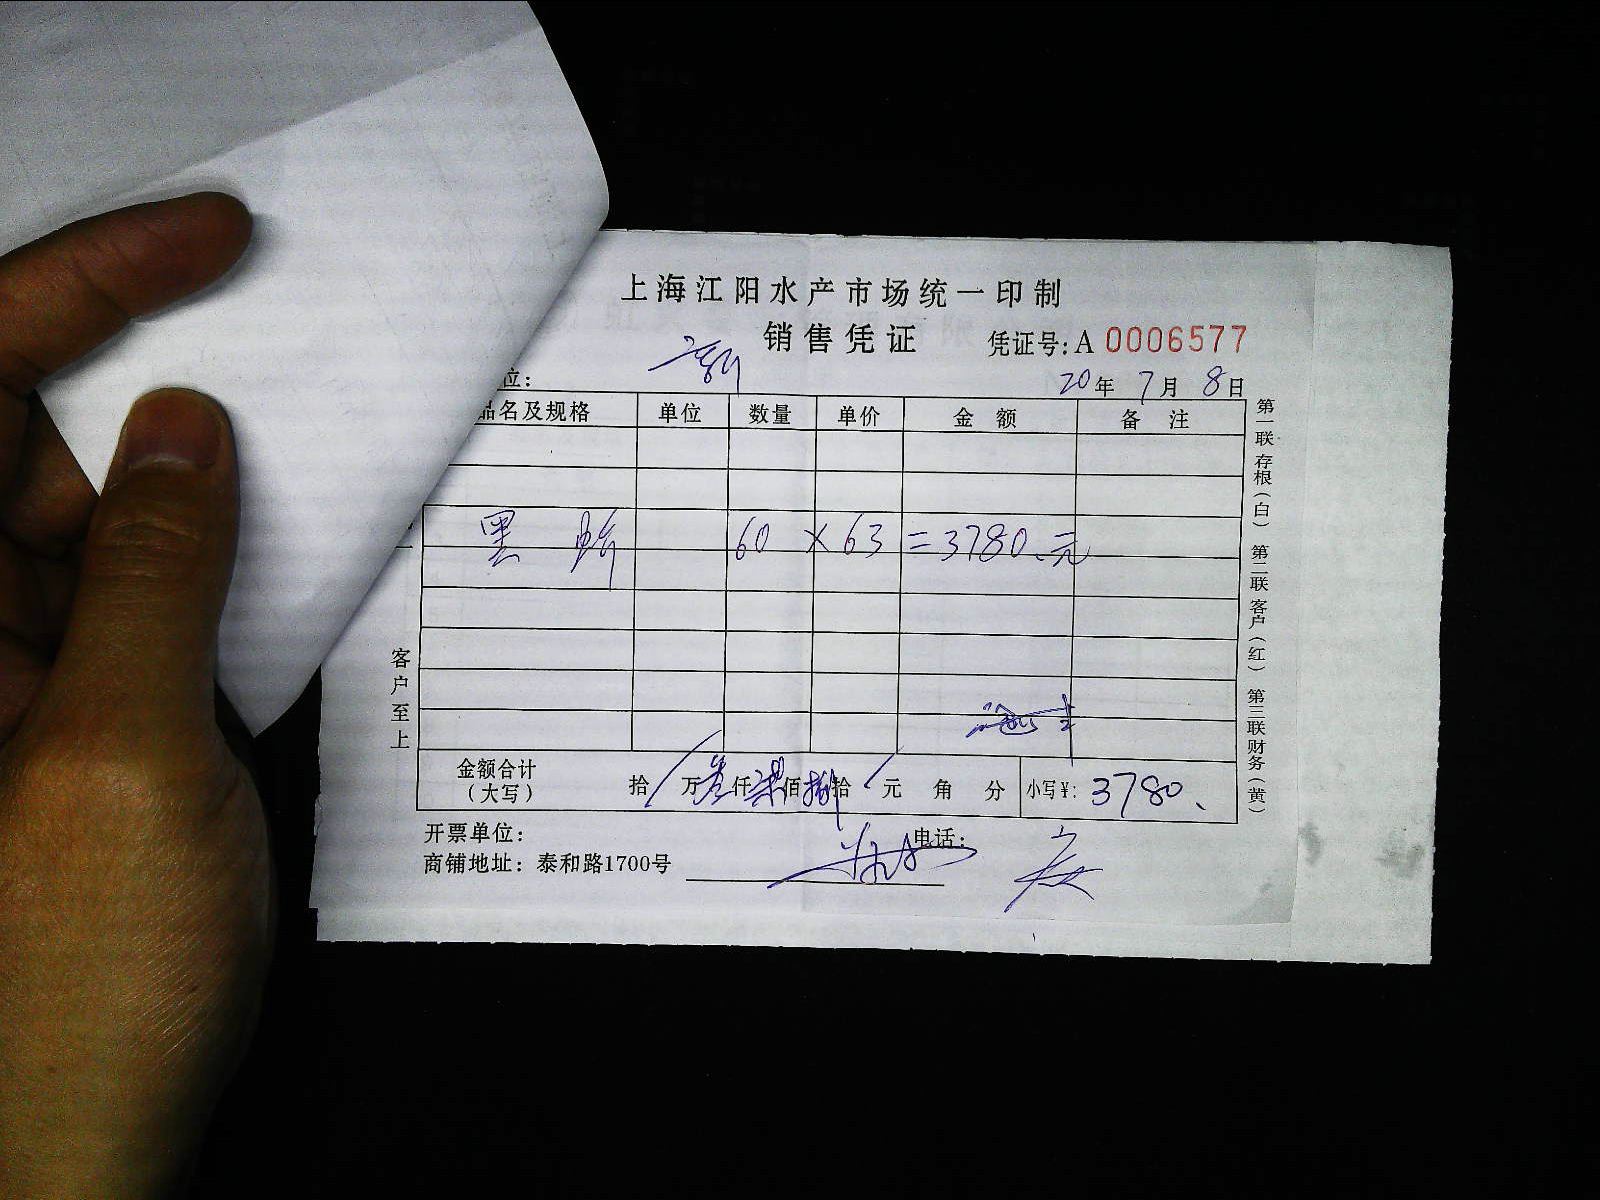 上海江阳水产市场统一印制
销售凭证 凭证号:A 0006577
位:
20年 7月 8日
品名及规格 单位 数量 单价 金 额 备 注
黑 60 × 63 =3780.元
金额合计(大写) 拾 万 叁仟柒佰捌拾 元 角 分 小写¥: 3780.
开票单位: 电话:
商铺地址: 泰和路1700号
客户至上
第一联存根(白) 第二联客户(红) 第三联财务(黄)